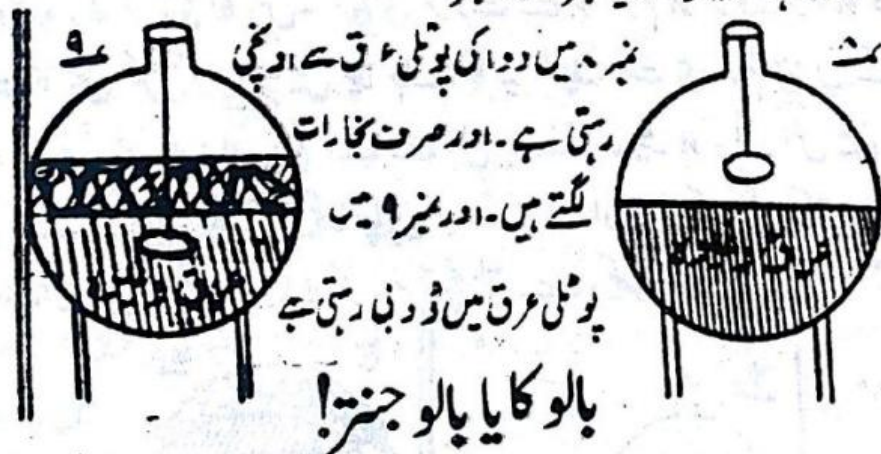 ۸
۹
نمبر ۸ میں دوا کی پوٹلی عرق سے اونچی
رہتی ہے۔ اور صرف بخارات
لگتے ہیں۔ اور نمبر ۹ میں
پوٹلی عرق میں ڈوبی رہتی ہے
عرق وغیرہ
عرق وغیرہ
بالو کا یا بالو جنتر!